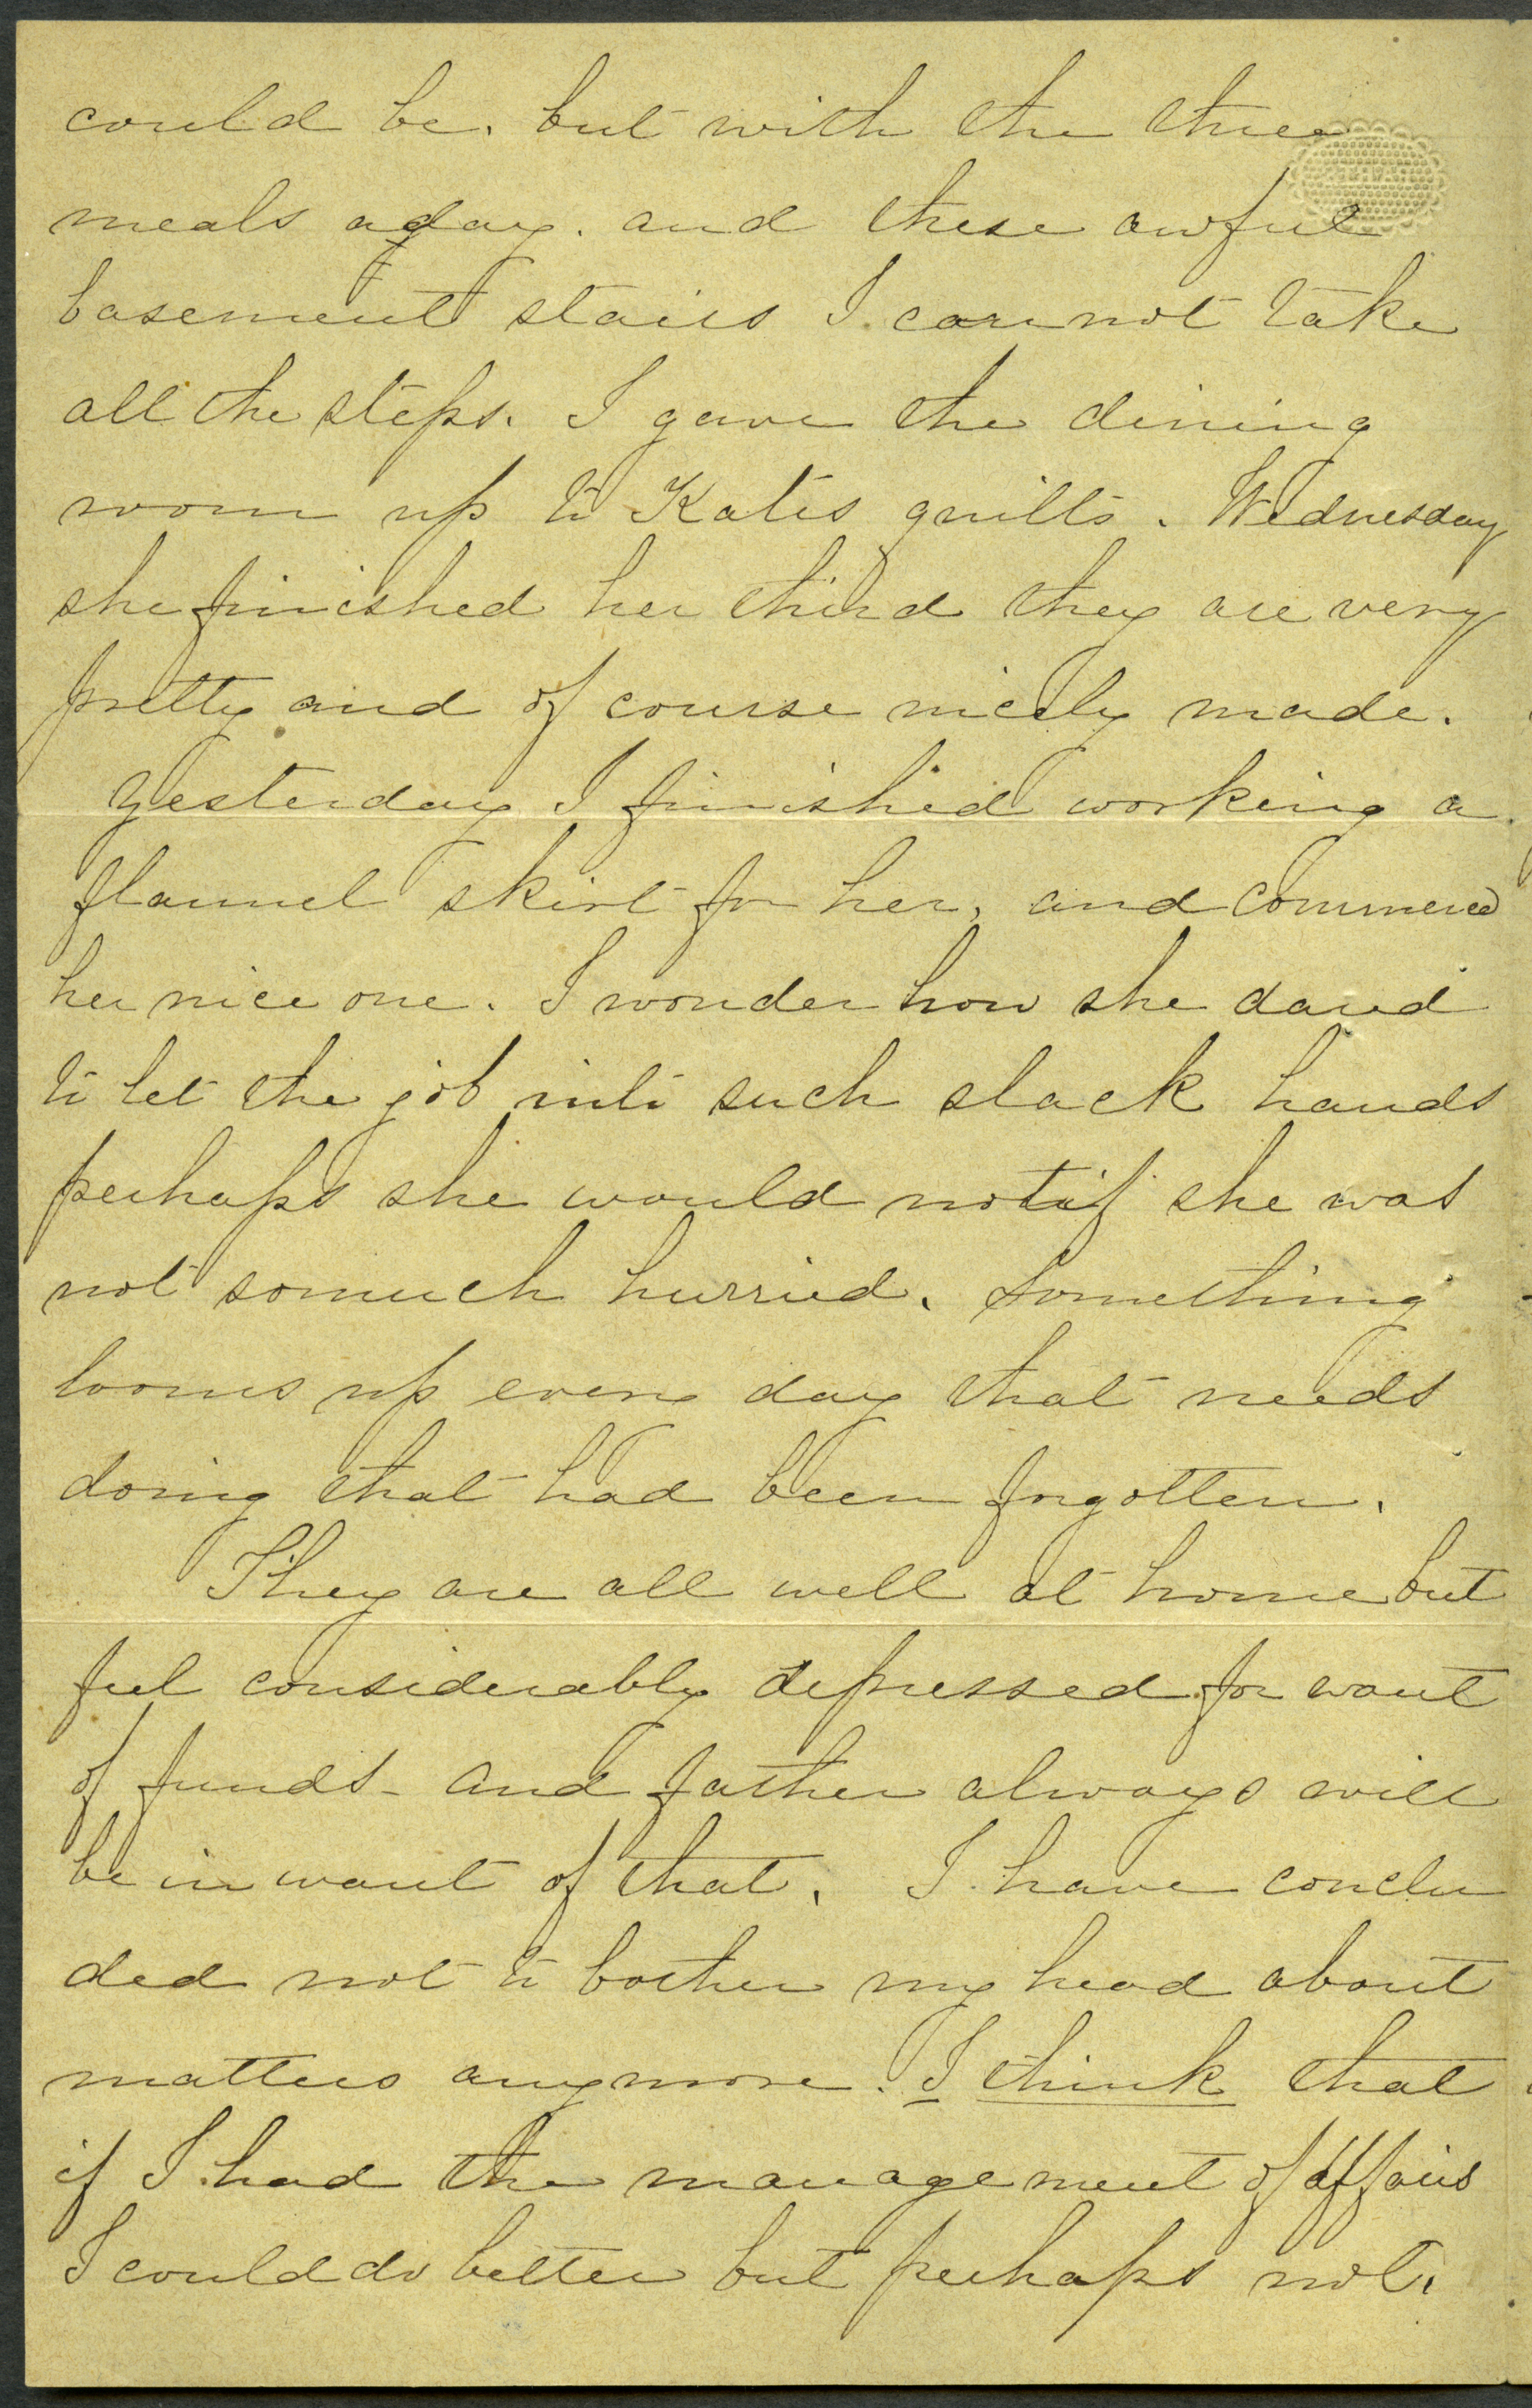 could be. but with the three
meals a day. and these awful
basement stairs I can not take
all the steps. I gave the dining
room up to Katis quilts. Wednesday
she finished her third they are very
pretty and of course nicely made.
Yesterday I finished working a
flannel skirt for her, and commenced
her nice one. I wonder how she dared
to let the job into such slack hands
perhaps she would not if she was
not somuch hurried. Something
looms up every day that needs
doing that had been forgotten.
They are all well at home but
feel considerably depressed for want
of funds - and father always will
be in want of that. I have conclu
ded not to bother my head about
matters anymore. I think that
if I had the management of affairs
I could do better but perhaps not.